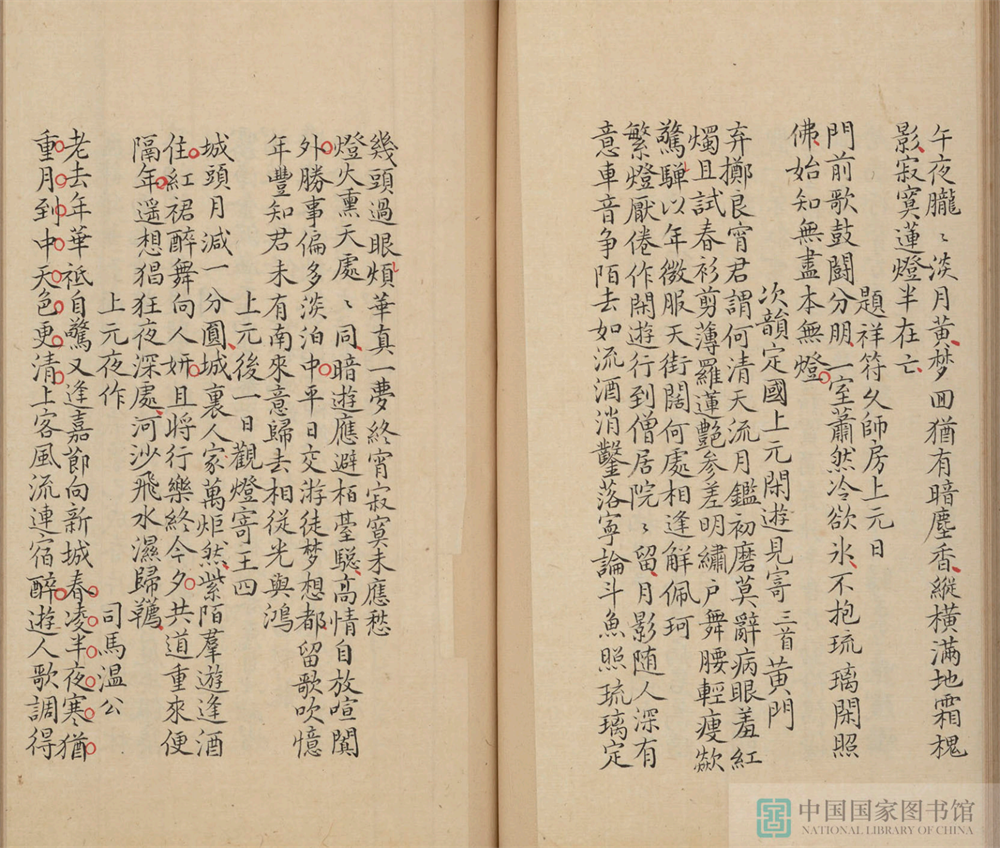 午夜朧〻淡月黃梦回猶有暗塵香縱横滿地霜槐
影寂寞蓮燈半在亡
題祥符久師房上元日
門前歌鼓鬪分朋一室蕭然冷欲氷不抱琉璃閑照
佛始知無盡本無燈
次韻定國上元閑遊見寄三首黃門
弃擲良宵君謂何清天流月鑑初磨莫辭病眼羞紅
燭且試春衫剪薄羅蓮艷参差明繡户舞腰輕瘦歘
驚驒以年微服天街闊何處相逢解佩珂
繁燈厭倦作閑遊行到僧居院〻留月影随人深有
意車音争陌去如流酒消鑿落寧論斗魚照琉璃定
幾頭過眼煩華真一夢終宵寂寞未應愁
燈火熏天處〻同暗遊應避栢䑓騘高情自放喧闐
外勝事偏多淡泊中平日交游徒梦想都留歌吹憶
年豐知君未有南來意歸去相從光與鴻
上元後一日觀燈寄王四
城頭月減一分圓城裏人家萬炬然紫陌羣遊逢酒
住紅裙醉舞向人妍且將行樂終今夕共道重來便
隔年遥想猖狂夜深處河沙飛水濕歸韉
上元夜作
司馬温公
老去年華祗自驚又逢嘉節向新城春凌半夜寒猶
重月到中天色更清上客風流連宿醉遊人歌調得
中国国家图书馆
NATIONAL LIBRARY OF CHINA